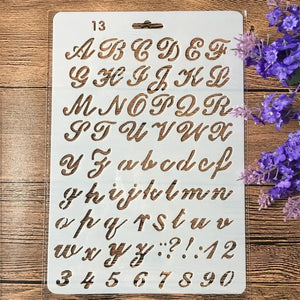 13
A B C D E F
G H I J K L
M N O P Q R
S T U V W X
Y Z a b c d e f
g h i j k l m n
o p q r s t u v
w x y z : ? ! ; 1 2
3 4 5 6 7 8 9 0